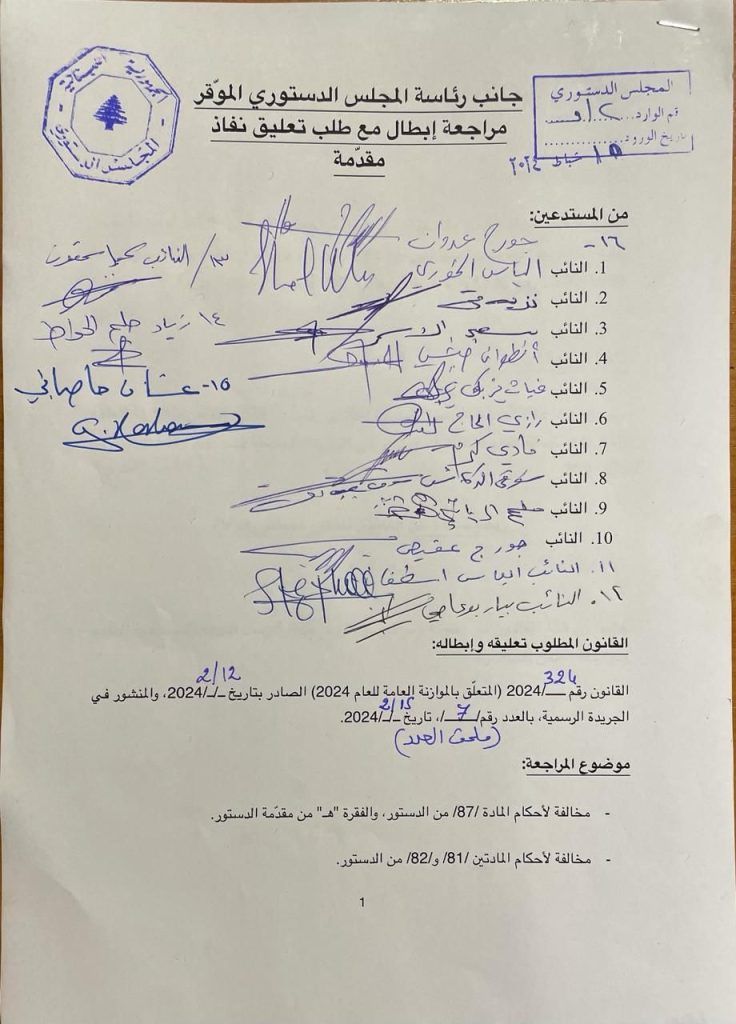 الجمهورية اللبنانية
المجلس الدستوري
المجلس الدستوري
رقم الوارد
تاريخ الورود
١٥ شباط ٢٠٢٤
جانب رئاسة المجلس الدستوري الموّقر
مراجعة إبطال مع طلب تعليق نفاذ
مقدّمة
من المستدعين:
١٦- جورج عدوان
1. النائب الياس الخوري
2. النائب نزيه متى
3. النائب سعيد الاسمر
4. النائب أنطوان حبشي
5. النائب غياث يزبك
6. النائب رازي الحاج
7. النائب فادي كرم
8. النائب شوقي الدكاش
9. النائب ملحم الرياشي
10. النائب جورج عقيص
١١. النائب الياس اسطفان
١٢. النائب بيار بو عاصي
١٣/ النائب
١٤ زياد حواط
١٥- غسان حاصباني
القانون المطلوب تعليقه وإبطاله:
القانون رقم 324/2024 (المتعلّق بالموازنة العامة للعام 2024) الصادر بتاريخ 2/12/2024، والمنشور في
الجريدة الرسمية، بالعدد رقم/7/، تاريخ 2/15/2024.
(ملحق العدد)
موضوع المراجعة:
- مخالفة لأحكام المادة /87/ من الدستور، والفقرة "هـ" من مقدّمة الدستور.
- مخالفة لأحكام المادتين /81/ و/82/ من الدستور.
1